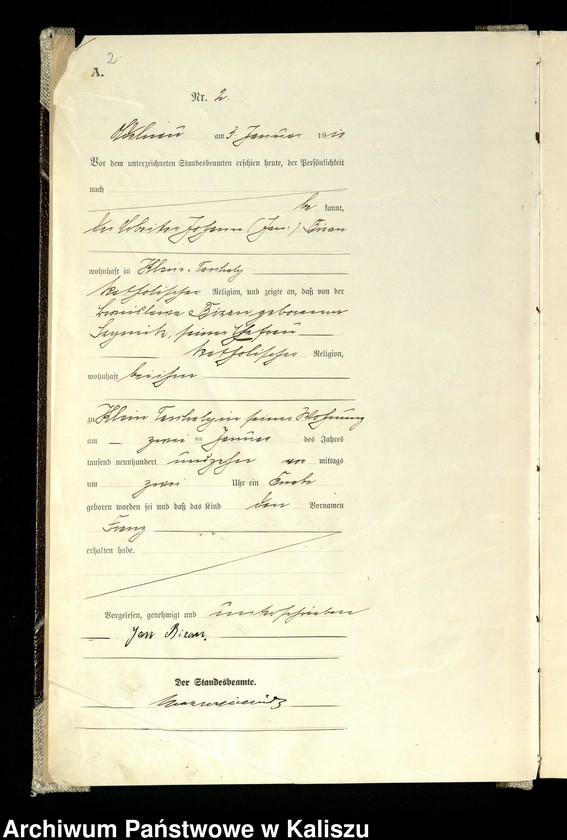 2
A.
Nr. 2.
am 3. Januar 19
Vor dem unterzeichneten Standesbeamten erschien heute, der Persönlichkeit
nach
be kannt,
der Arbeiter Johann (Jan) Bizan
wohnhaft in Klein-Topola
katholischer Religion, und zeigte an, daß von der
Bronislawa Bizan geborenen
seiner Ehefrau
katholischer Religion,
wohnhaft bei ihm
zu Klein Topola in seiner Wohnung
am zwei ten Januar des Jahres
tausend neunhundert undzehn vor mittags
um zwei Uhr ein Knabe
geboren worden sei und daß das Kind den Vornamen
Franz
erhalten habe.
Vorgelesen, genehmigt und unterschrieben
Jan Bizan.
Der Standesbeamte.
Archiwum Państwowe w Kaliszu